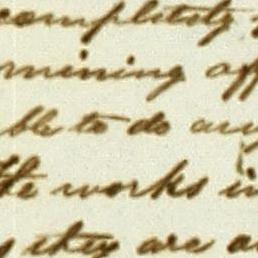 completely
mining off
ble to do any
the works in
they are